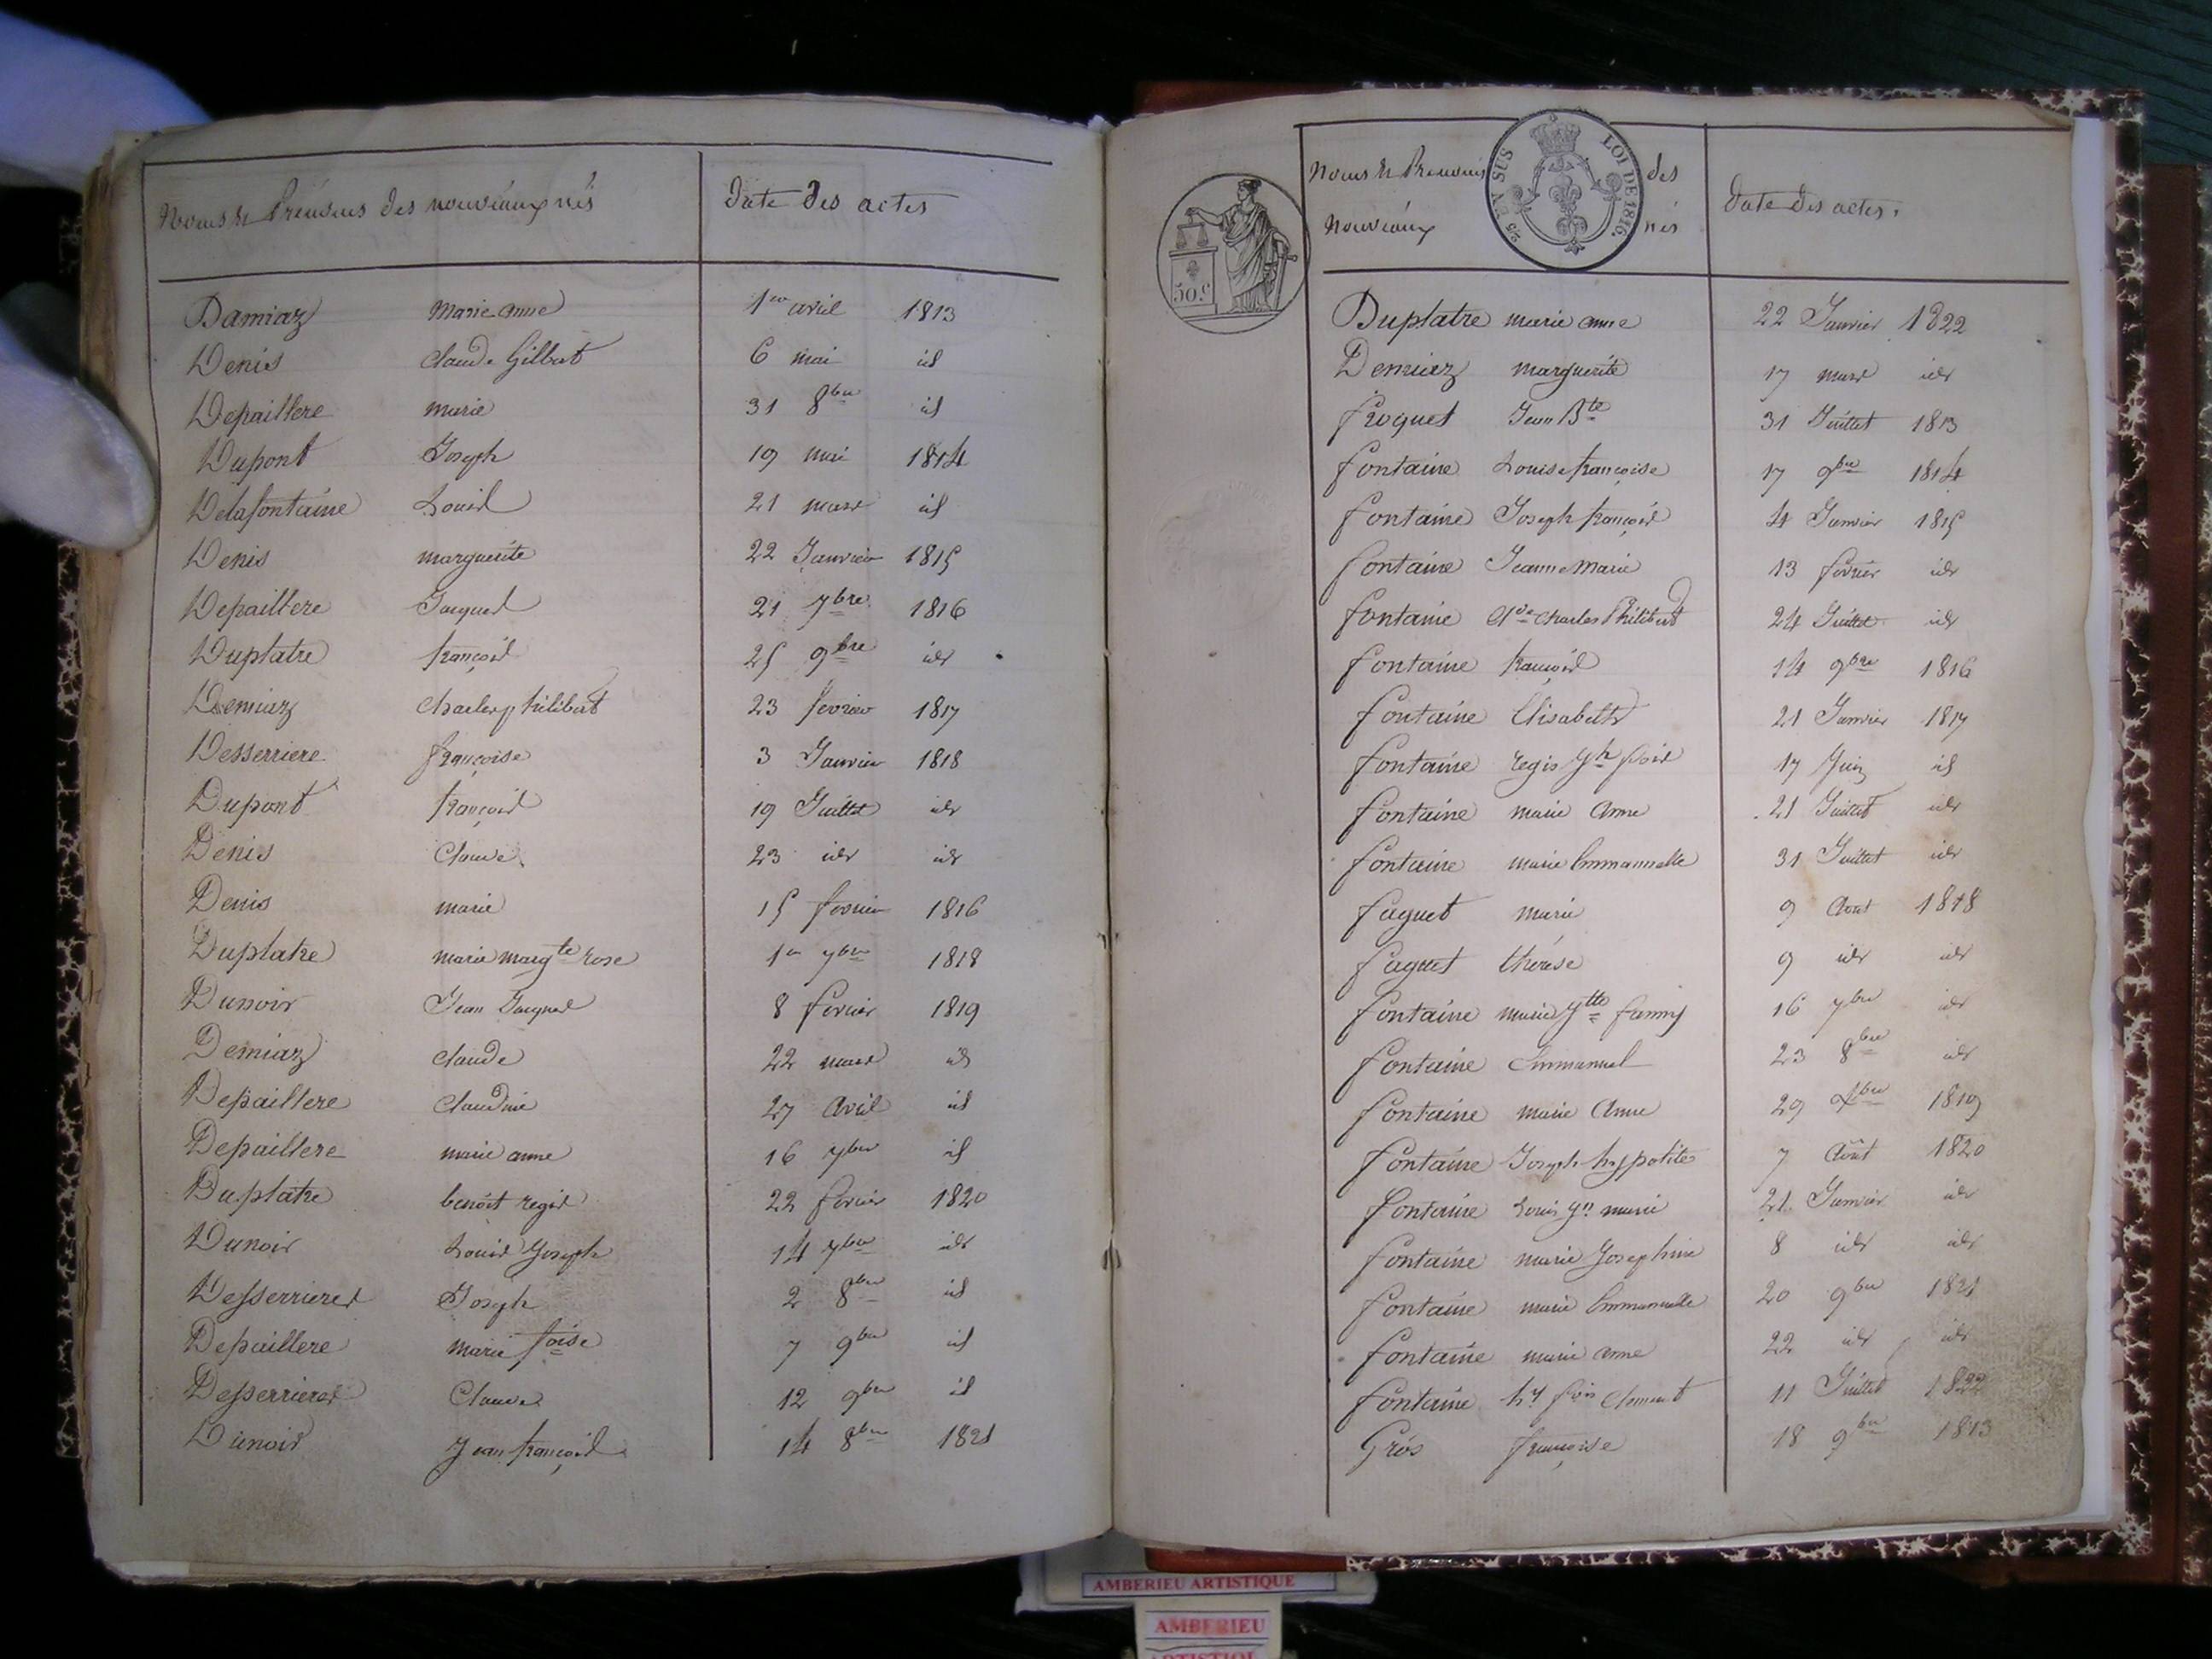 Noms & Prénoms des nouveaux nés date des actes
Damiaz Marie anne 1er avril 1813
Denis Claude Gilbert 6 mai id
Depaillere marie 31 8bre id
Dupont Joseph 19 mai 1814
Delafontaine Louis 21 mars id
Denis marguerite 22 Janvier 1815
Depaillere Jacques 21 7bre 1816
Duplatre françois 25 9bre idr
Demiaz Charles philibert 23 fevrier 1817
Desserriere françoise 3 Janvier 1818
Dupont françois 19 Juillet idr
Denis Claude 23 idr idr
Denis marie 15 fevrier 1816
Duplatre marie margte rose 1er 7bre 1818
Dunoir Jean Jacques 8 fevrier 1819
Demiaz claude 22 mars id
Depaillere Claudine 27 avril id
Depaillere marie anne 16 7bre id
Duplatre benoit regis 22 fevrier 1820
Dunoir Louis Joseph 14 7bre idr
Desserrieres Joseph 2 8bre id
Depaillere marie foise 7 9bre id
Desserrieres Claude 12 9bre id
Dunoir Jean françois 14 8bre 1821
Noms & Prenoms des
nouveaux nés date des actes.
25 EN SUS LOI DE 1816.
50C
Duplatre marie anne 22 Janvier 1822
Demiaz marguerite 17 mars idr
froquet Jean Bte 31 Juillet 1813
fontaine Louise françoise 17 9bre 1814
fontaine Joseph françois 4 Janvier 1815
fontaine Jeanne Marie 13 fevrier idr
fontaine Charles Philibert 24 Juillet idr
fontaine françois 14 9bre 1816
fontaine Elisabeth 21 Janvier 1817
fontaine regis Jh fois 17 Juin id
fontaine marie anne 21 Juillet idr
fontaine marie Emmanuelle 31 Juillet idr
faguet marie 9 Aout 1818
faguet thérèse 9 idr idr
fontaine marie Jtte fanny 16 7bre idr
fontaine Emmanuel 23 8bre idr
fontaine marie Anne 29 Xbre 1819
fontaine Joseph hypolite 7 Août 1820
fontaine Louis marie 21 Janvier idr
fontaine marie Josephine 8 idr idr
fontaine marie Emmanuelle 20 9bre 1821
fontaine marie anne 22 idr idr
fontaine hy fois Clement 11 Juillet 1822
Gros françoise 18 9bre 1813
AMBERIEU ARTISTIQUE
AMBERIEU
ARTISTIQU